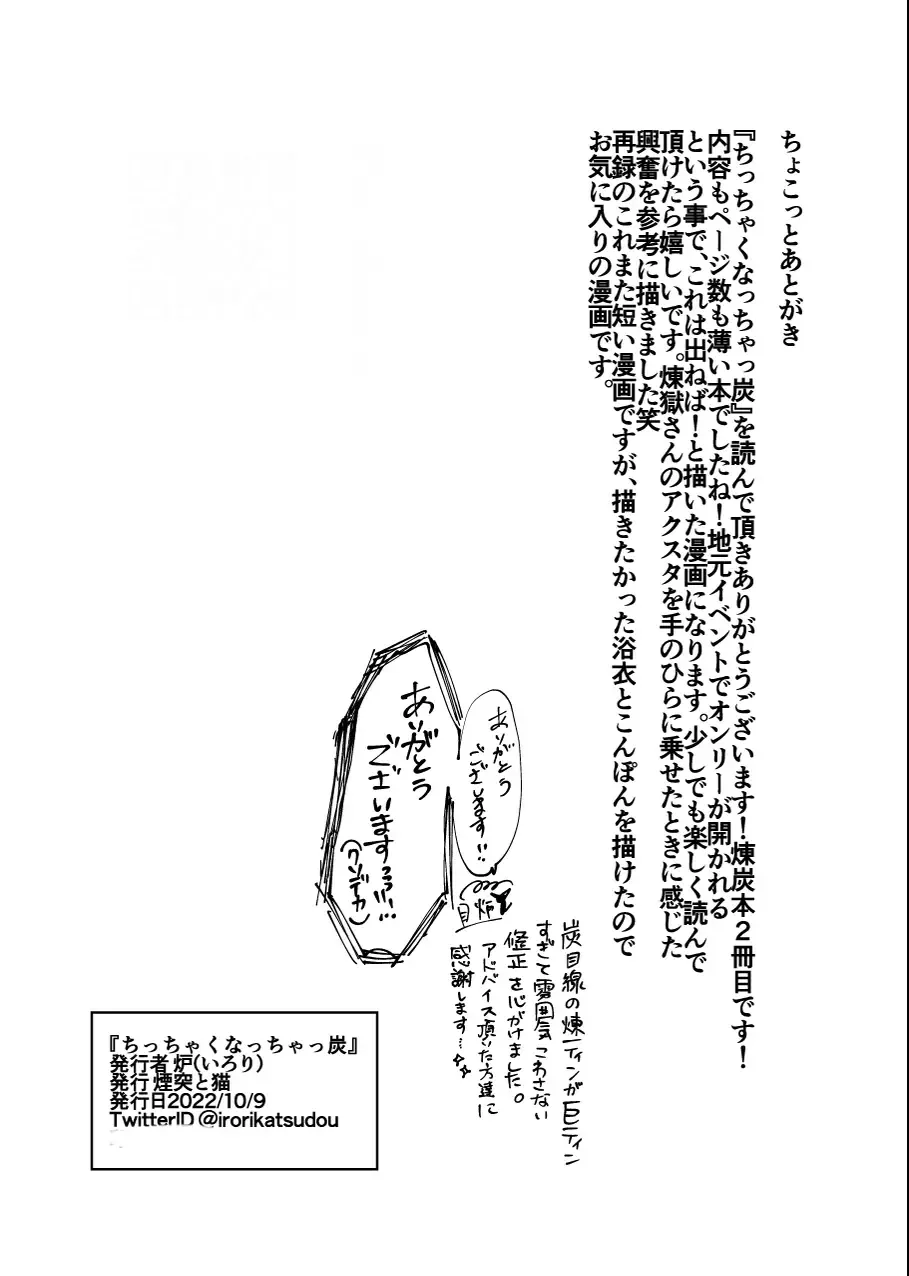 ちょこっとあとがき
『ちっちゃくなっちゃっ炭』を読んで頂きありがとうございます！煉炭本２冊目です！
内容もページ数も薄い本でしたね！地元イベントでオンリーが開かれる
という事で、これは出ねば！と描いた漫画になります。少しでも楽しく読んで
頂けたら嬉しいです。煉獄さんのアクスタを手のひらに乗せたときに感じた
興奮を参考に描きました笑
再録のこれまた短い漫画ですが、描きたかった浴衣とこんぽんを描けたので
お気に入りの漫画です。
ありがとう
ございます!!
炉
ありがとう
ございます
(クソデカ)
炭目線の煉ティンが巨ティン
すぎて雰囲気こわさない
修正を心がけました。
アドバイス頂いた方達に
感謝します…
『ちっちゃくなっちゃっ炭』
発行者 炉(いろり)
発行 煙突と猫
発行日2022/10/9
TwitterID @irorikatsudou